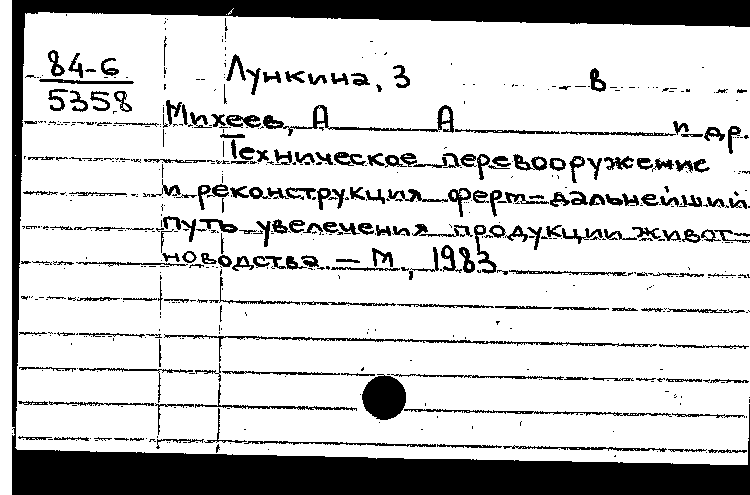 84-6
5358
Лункина, З В
Михеев, А А и др.
Техническое перевооружение
и реконструкция ферм-дальнейший
путь увелечения продукции живот-
новодства - М, 1983.